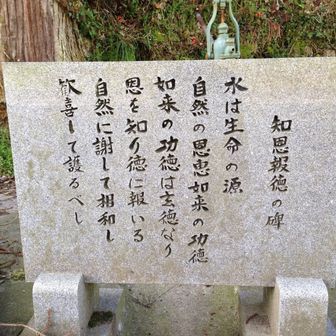 知恩報徳の碑
水は生命の源
自然の恩恵如来の功徳
如来の功徳は玄徳なり
恩を知り徳に報いる
自然に謝して相和し
歓喜して護るべし